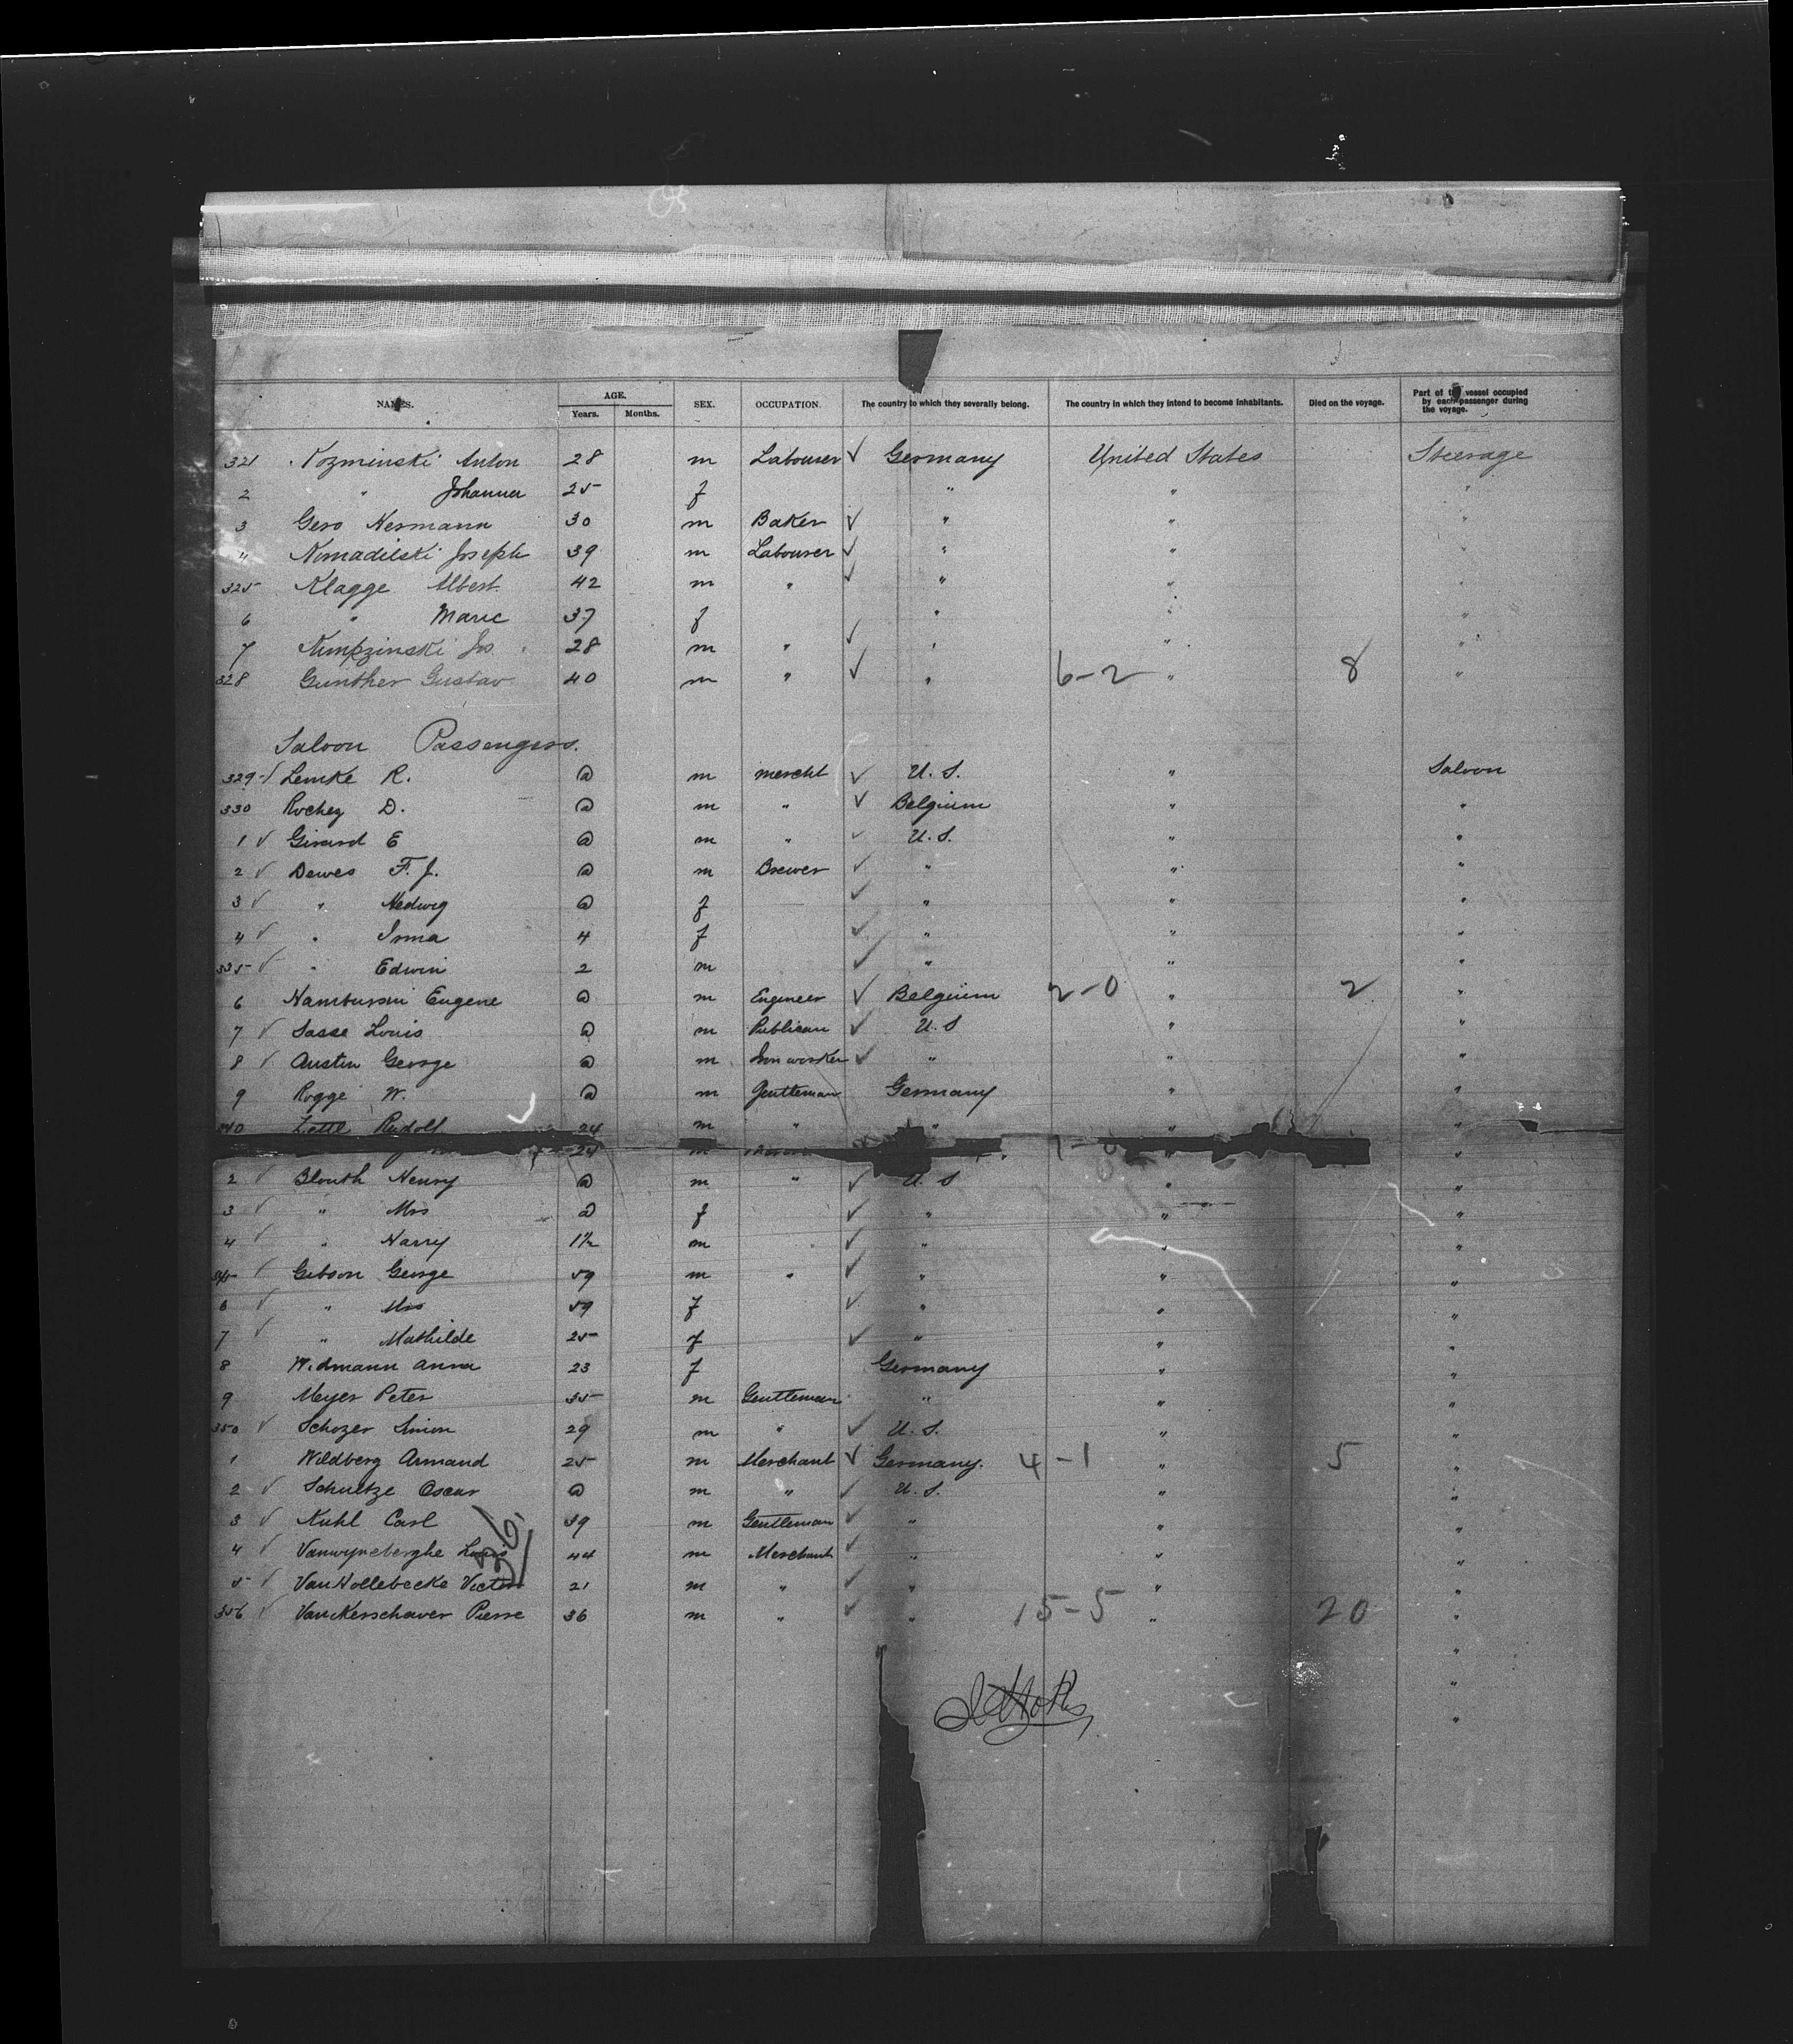 NAMES. AGE. Years. Months. SEX. OCCUPATION. The country to which they severally belong. The country in which they intend to become inhabitants. Died on the voyage. Part of the vessel occupied by each passenger during the voyage.
321 Kozminski Anton 28 m Labourer ✓ Germany United States Steerage
2 " Johanna 25 f " " "
3 Gero Hermann 30 m Baker ✓ " " "
4 Joseph 39 m Labourer ✓ " " "
325 Klagge Albert 42 m " ✓ " " "
6 " Marie 37 f " " "
7 Jos 28 m " ✓ " " "
328 Gunther Gustav 40 m " ✓ " 6-2 " 8 "
Saloon Passengers.
329 ✓ Lemke R. @ m mercht ✓ U.S. " Saloon
330 Rochez D. @ m " ✓ Belgium " "
1 ✓ Girard E @ m " ✓ U.S. " "
2 ✓ Dewes F. J. @ m Brewer ✓ " " "
3 ✓ " Hedwig @ f ✓ " " "
4 ✓ " Irma 4 f ✓ " " "
335 ✓ " Edwin 2 m ✓ " " "
6 Eugene @ m Engineer ✓ Belgium 2-0 " 2 "
7 ✓ Sasse Louis @ m Publican ✓ U.S " "
8 ✓ Austin George @ m Iron worker ✓ " " "
9 Rogge W. @ m Gentleman Germany " "
340 Rudolf 24 m " " " "
24 m "
2 ✓ Blouth Henry @ m " ✓ U.S " "
3 ✓ " Mrs @ f ✓ " " "
4 ✓ " Harry 1½ m ✓ " " "
345 ✓ Gibson George 59 m " ✓ " " "
6 ✓ " Mrs 59 f ✓ " " "
7 ✓ " Mathilde 25 f ✓ " " "
8 Widmann Anna 23 f Germany " "
9 Meyer Peter 35 m Gentleman " " "
350 ✓ Schozer Simon 29 m " ✓ U.S. " "
1 Wildberg Armand 25 m Merchant ✓ Germany. 4-1 " 5 "
2 ✓ Schultze Oscar @ m " ✓ U.S. " "
3 ✓ Kuhl Carl 39 m Gentleman ✓ " " "
4 ✓ Vanwyneberghe Louis 44 m Merchant ✓ " " "
5 ✓ VanHollebecke Victor 21 m " ✓ " " "
356 ✓ VanKerschaver Pierre 36 m " ✓ " 15-5 " 20 "